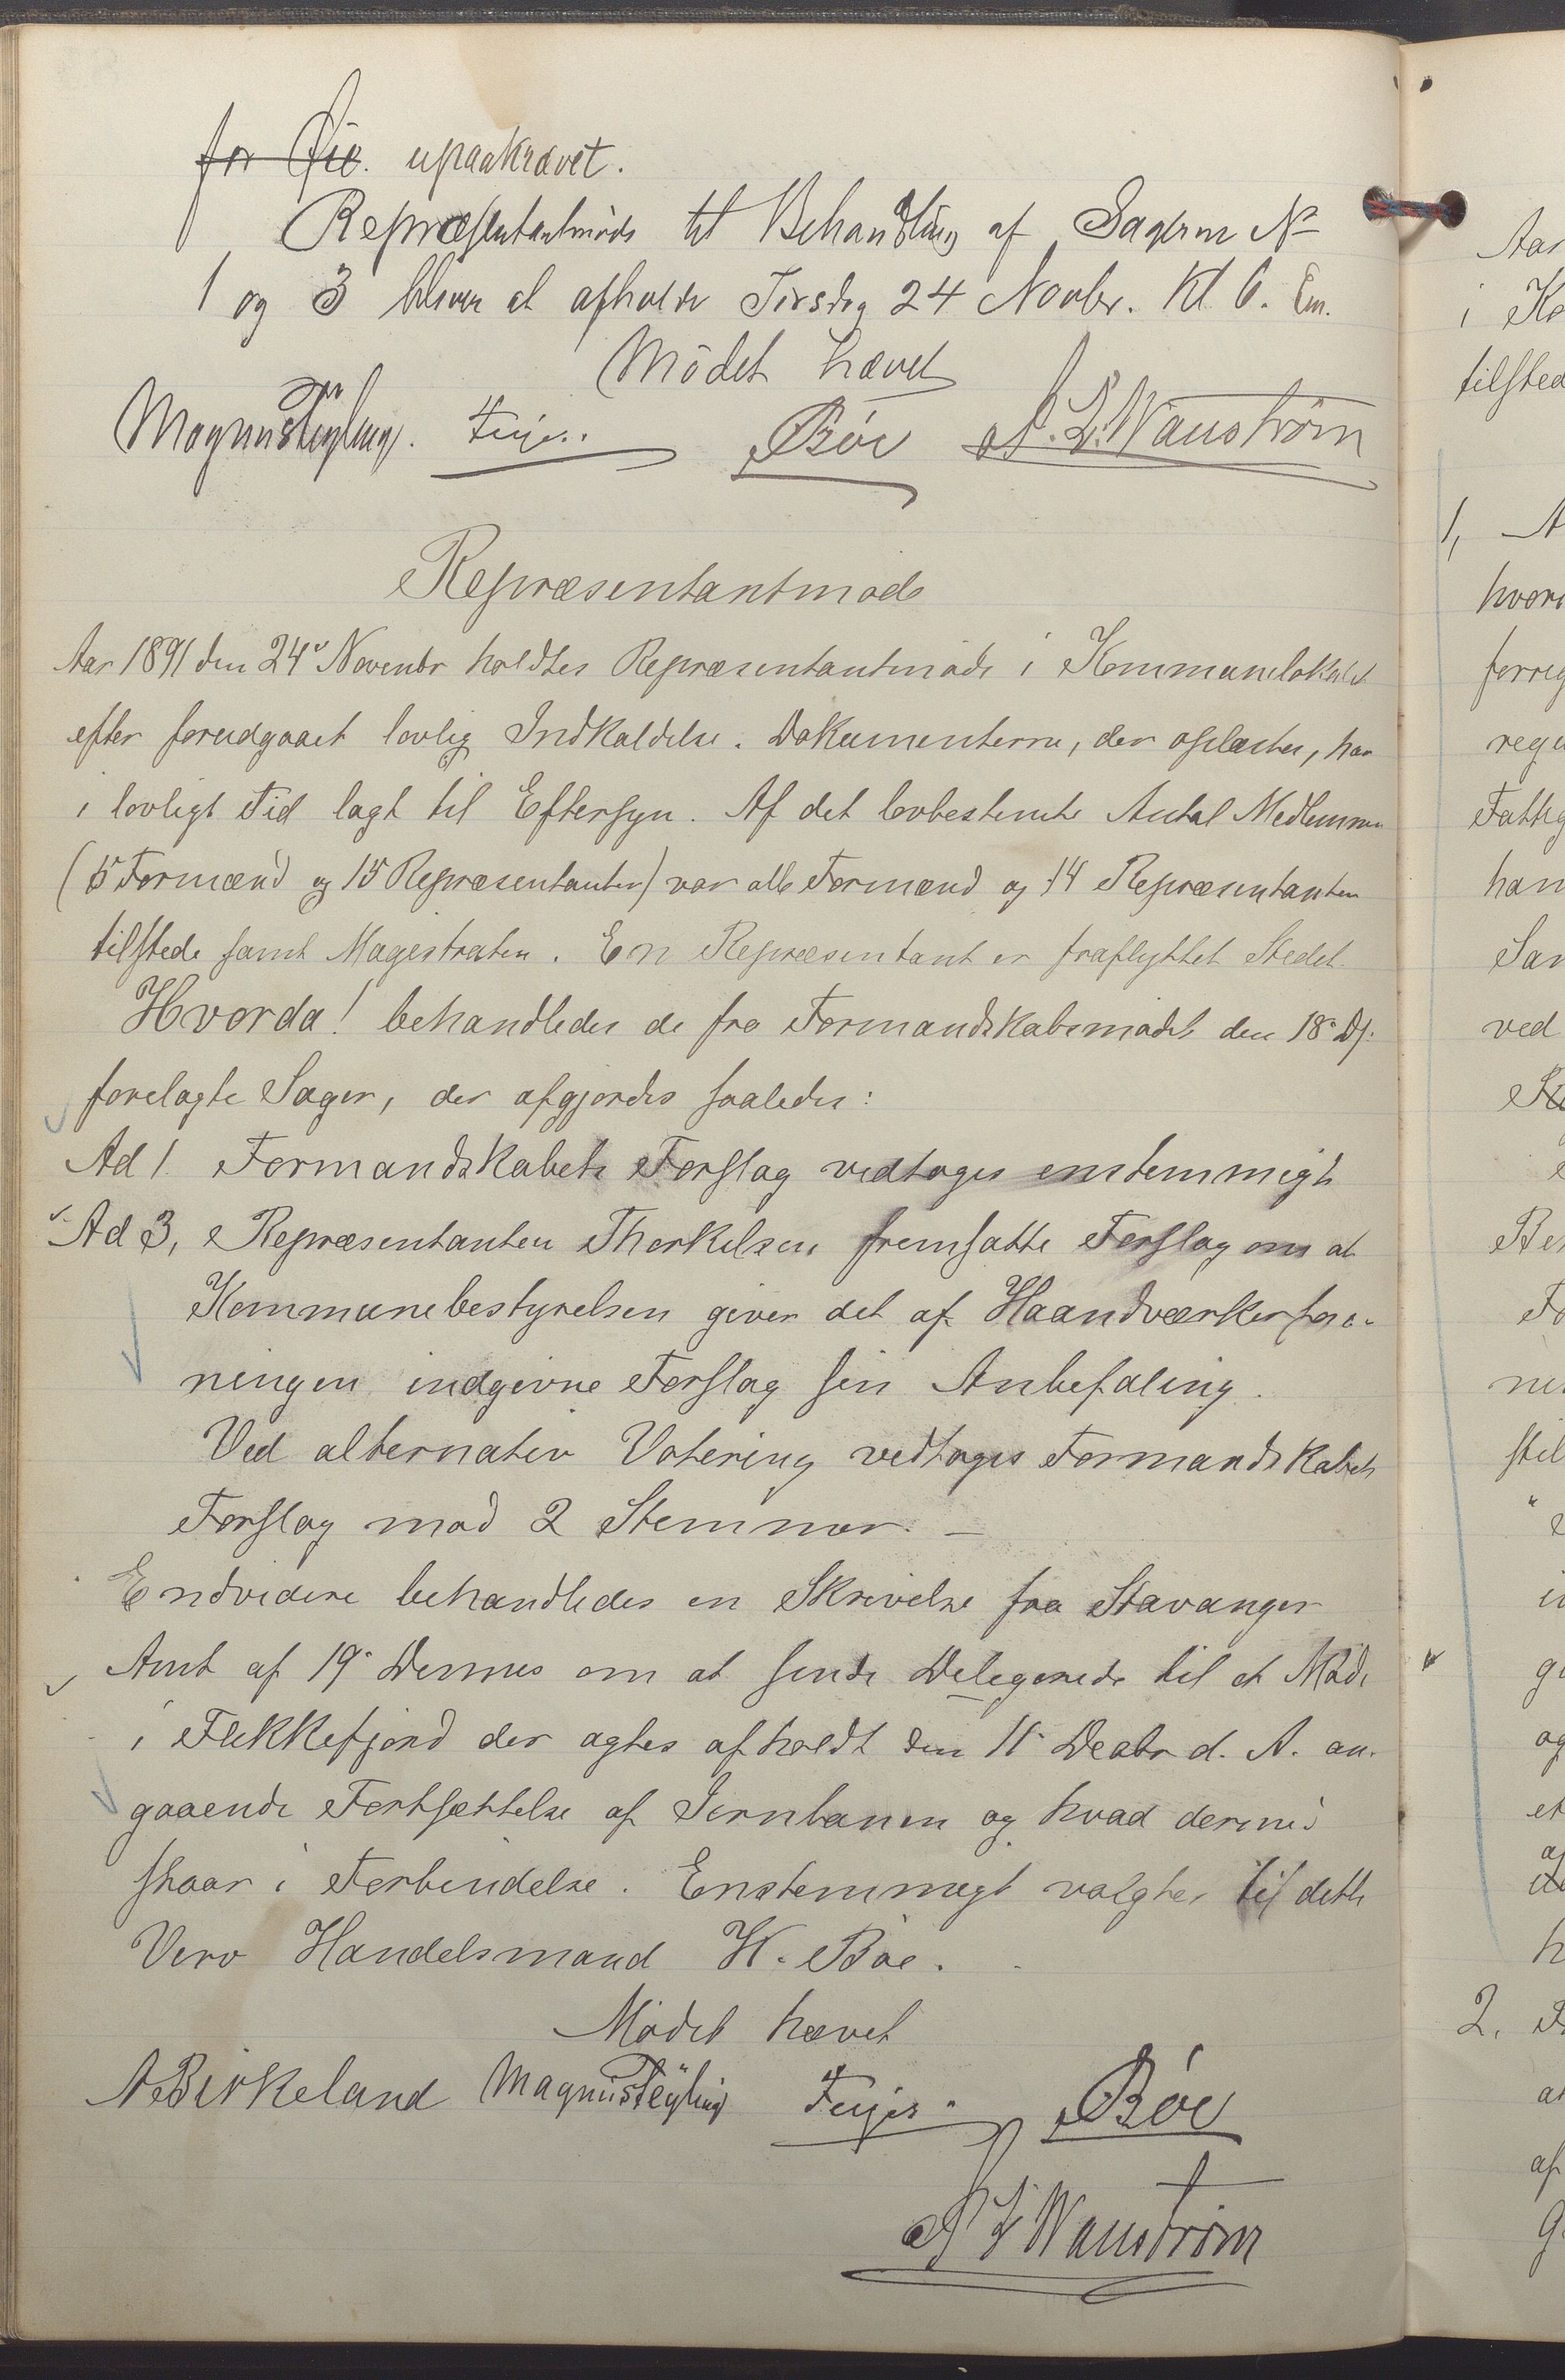 for Øie. upaakrævet.
Repræsentantmøde til Behandling af Sagerne No
1 og 3 bliver at afholde Tirsdag 24 Novbr. Kl 6. Em.
Mödet hævet
Magnus Feyling. Feyer. Bøe L. Wanström
Repræsentantmøde
Aar 1891 den 24de Novembr holdtes Repræsentantmøde i Kommunelokalet
efter forudgaaet lovlig Indkaldelse. Dokumenterne, der oplæstes, har
i lovligt Tid lagt til Eftersyn. Af det lovbestemte Antal Medlemmer
(5 Formænd og 15 Repræsentanter) var alle Formænd og 14 Repræsentanter
tilstede samt Magistraten. En Repræsentant er fraflyttet Stedet.
Hvorda! behandledes de fra Formandskabsmødet den 18de Ds.
forelagte Sager, der afgjordes saaledes:
Ad 1. Formandskabets Forslag vedtoges enstemmigt
Ad 3, Repræsentanten Thorkelsen fremsatte Forslag om at
Kommunebestyrelsen giver det af Haandværkerfore-
ningen indgivne Forslag sin Anbefaling.
Ved alternativ Votering vedtoges Formandskabets
Forslag mod 2 Stemmer. —
Endvidere behandledes en Skrivelse fra Stavanger
Amt af 19de Dennes om at sende Delegerede til et Møde
i Flekkefjord der agtes afholdt den 11te Decbr d. A. an-
gaaende Fortsættelse af Jernbanen og hvad dermed
staar i Forbindelse. Enstemmigt valgtes til dette
Verv Handelsmand W. Bøe.
Mødet hævet
A Birkeland Magnus Feyling Feyer. Bøe
L Wanström
Aar
i Ko
tilsted
1, A
hvori
forrig
regu
Fattig
han
Sam
ved
Ber
Fo
ni
stil
gi
og
et
af
h
2.
at
af